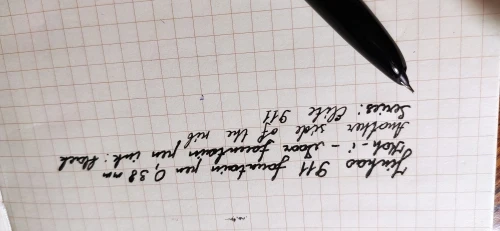 Jinhao 911 fountain pen 0,38 mm
Koh-i-noor fountain pen ink: black
Another side of the nib
Series: Elite 911